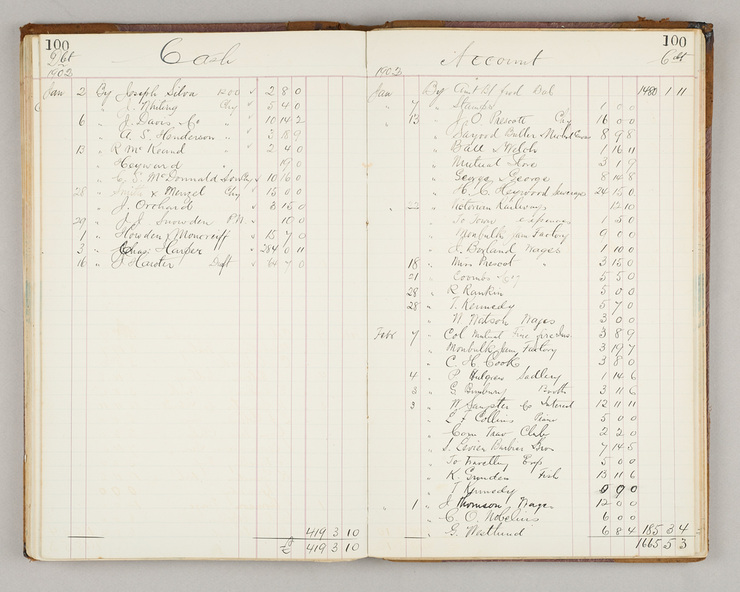 100
Cash
Dbt
1903
Jan 2 By Joseph Silva 2 8 0
" Chq " 5 4 0
6 " J. Davis " 10 14 2
" A. S. Henderson " 3 18 9
13 " R Mc " 2 4 0
" Heyward " 19 0
" McDonnald " 10 16 0
28 " & Menzel Chq " 15 0 0
" J. Orchard " 8 15 0
29 " Snowden P.N. " 10 0
1 " Howden Moncrieff " 15 7 0
3 " Chas. Harper " 284 0 11
16 " Harter Dft " 64 7 0
419 3 10
419 3 10
100
Account
Cdt
1903
Jan By Bal 1480 1 11
" 7 " Stamps 1 0 0
" 13 " J O Prescott Chq 16 0 0
" Butter 8 9 8
" Ball & Welch 1 16 11
" Mutual Store 3 1 9
" George & George 8 14 8
" H. C. Heywood 24 15 0
" 22 " Victorian Railways 12 10
" To Town expenses 1 5 0
" Monbulk Jam Factory 9 0 0
" J. Borland Wages 1 10 0
18 " Miss Prescot " 3 15 0
21 " Coombs 5 5 0
28 " R Rankin 5 0 0
28 " T. Kennedy 5 7 0
" W Watson Wages 3 0 0
Febr 7 " Col Mutual Fire 3 8 9
" Monbulk Jam Factory 3 19 7
" C. H Cook 3 8 0
4 " P. Hulgren Sadlery 1 14 6
2 " G. Boots 3 11 6
3 " W Sangster & Co Interest 12 11 11
" Collins Piano 5 0 0
" Com Trav Club 2 2 0
" Bros 7 14 5
" To Travelling Exp 5 0 0
" K. Fish 13 11 6
" T Kennedy 0 9 0
" 1 " J Thomson Wages 12 0 0
" C. O. Nobelius 6 0 0
" G. Westlund 6 8 4 185 3 4
1665 5 3